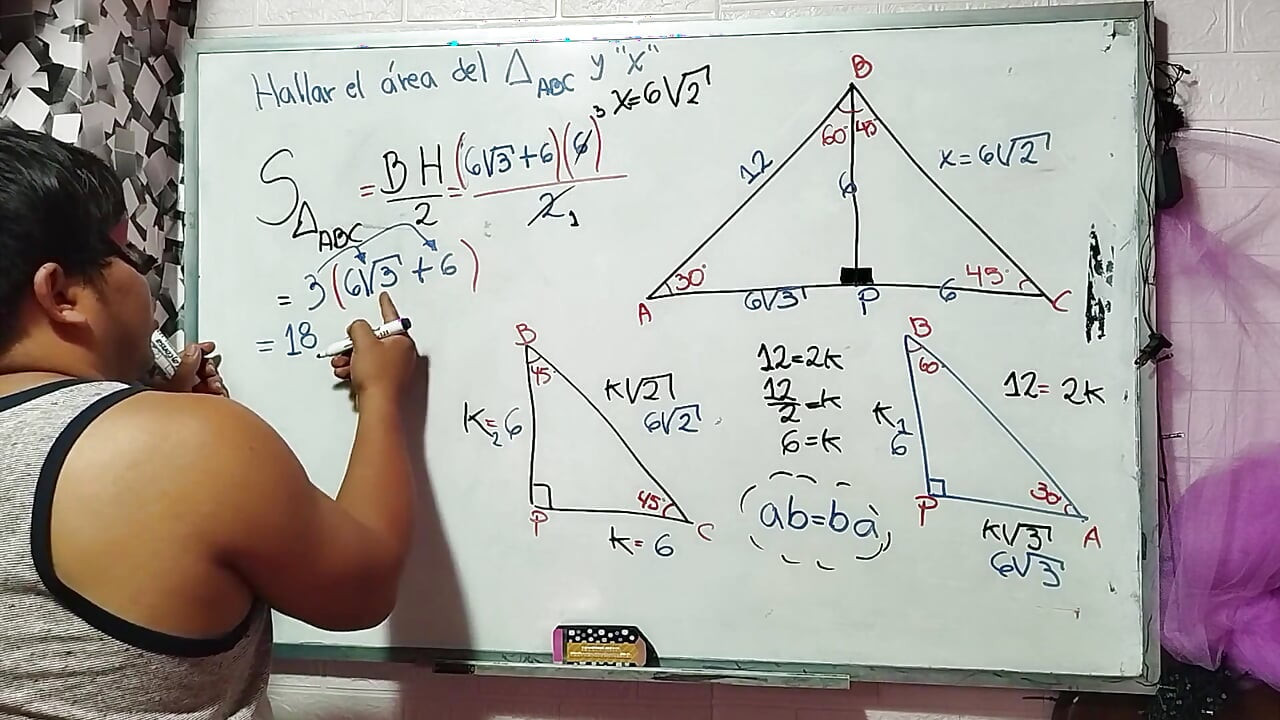 Hallar el área del △ABC y "x"
x=6√2
S△ABC = BH/2 = (6√3+6)(6)3/2 1
= 3(6√3+6)
= 18
B
60° 45°
12
x=6√2
6
30° 45°
A 6√3 P 6 C
B
45°
K=6
K√2
6√2
45°
P C
K=6
12=2K
12/2=K
6=K
ab=ba
B
60°
K
6
12=2K
30°
P A
K√3
6√3